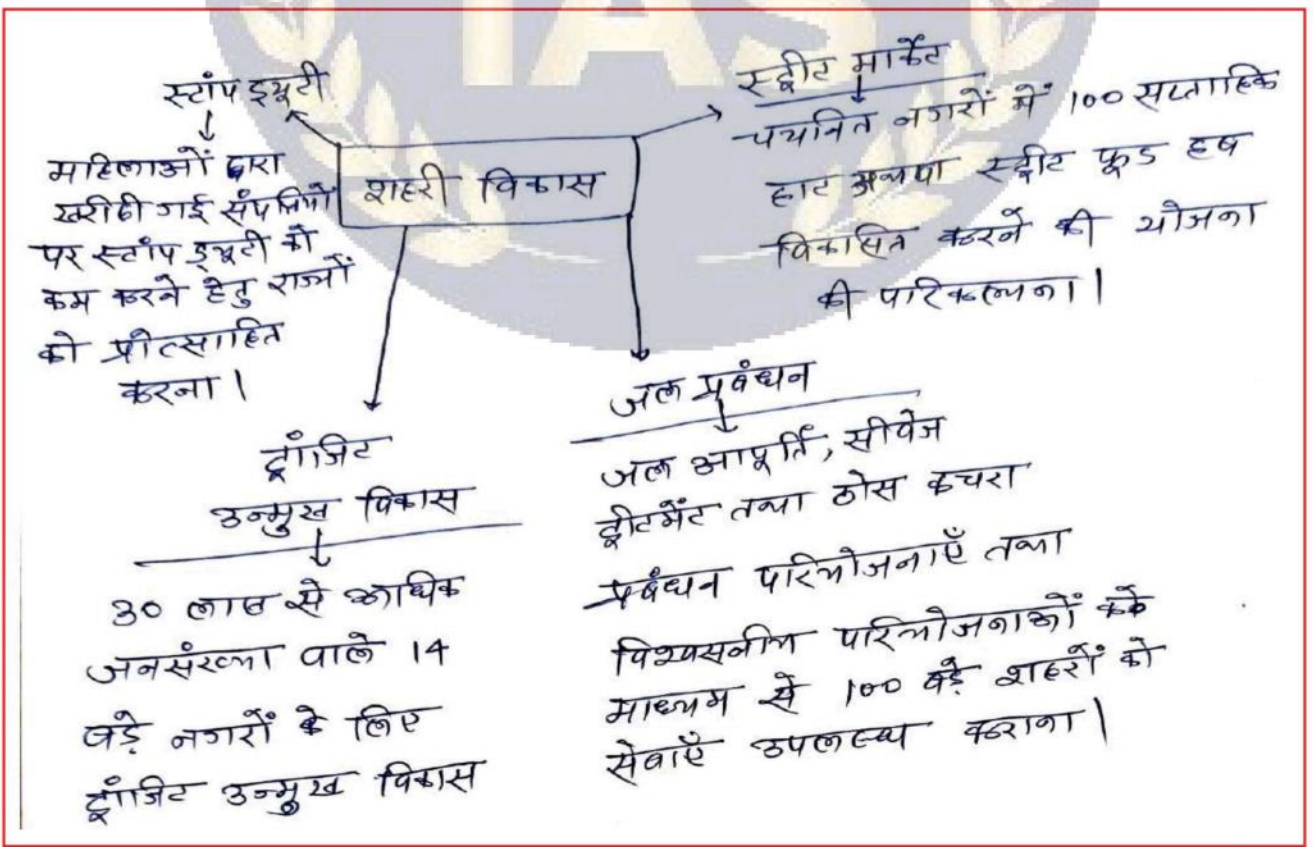 IAS
स्टांप ड्यूटी
महिलाओं द्वारा
खरीदी गई संपत्तियों
पर स्टांप ड्यूटी को
कम करने हेतु राज्यों
को प्रोत्साहित
करना।
शहरी विकास
स्ट्रीट मार्केट
चयनित नगरों में 100 सप्ताहिक
हाट अथवा स्ट्रीट फूड हब
विकसित करने की योजना
की परिकल्पना।
ट्रांजिट
उन्मुख विकास
30 लाख से अधिक
जनसंख्या वाले 14
बड़े नगरों के लिए
ट्रांजिट उन्मुख विकास
जल प्रबंधन
जल आपूर्ति, सीवेज
ट्रीटमेंट तथा ठोस कचरा
प्रबंधन परियोजनाएँ तथा
विश्वसनीय परियोजनाओं के
माध्यम से 100 बड़े शहरों को
सेवाएँ उपलब्ध कराना।